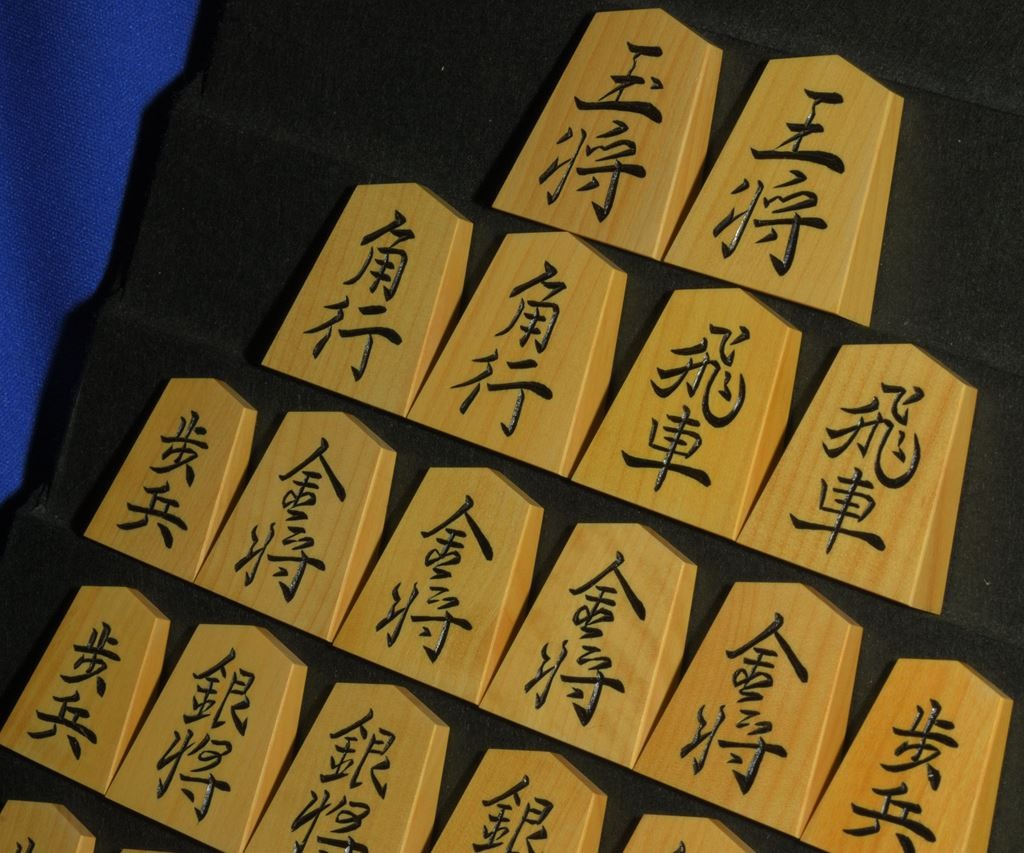 玉将 王将
角行 角行 飛車 飛車
歩兵 金将 金将 金将 金将 歩兵
歩兵 銀将 銀将 銀